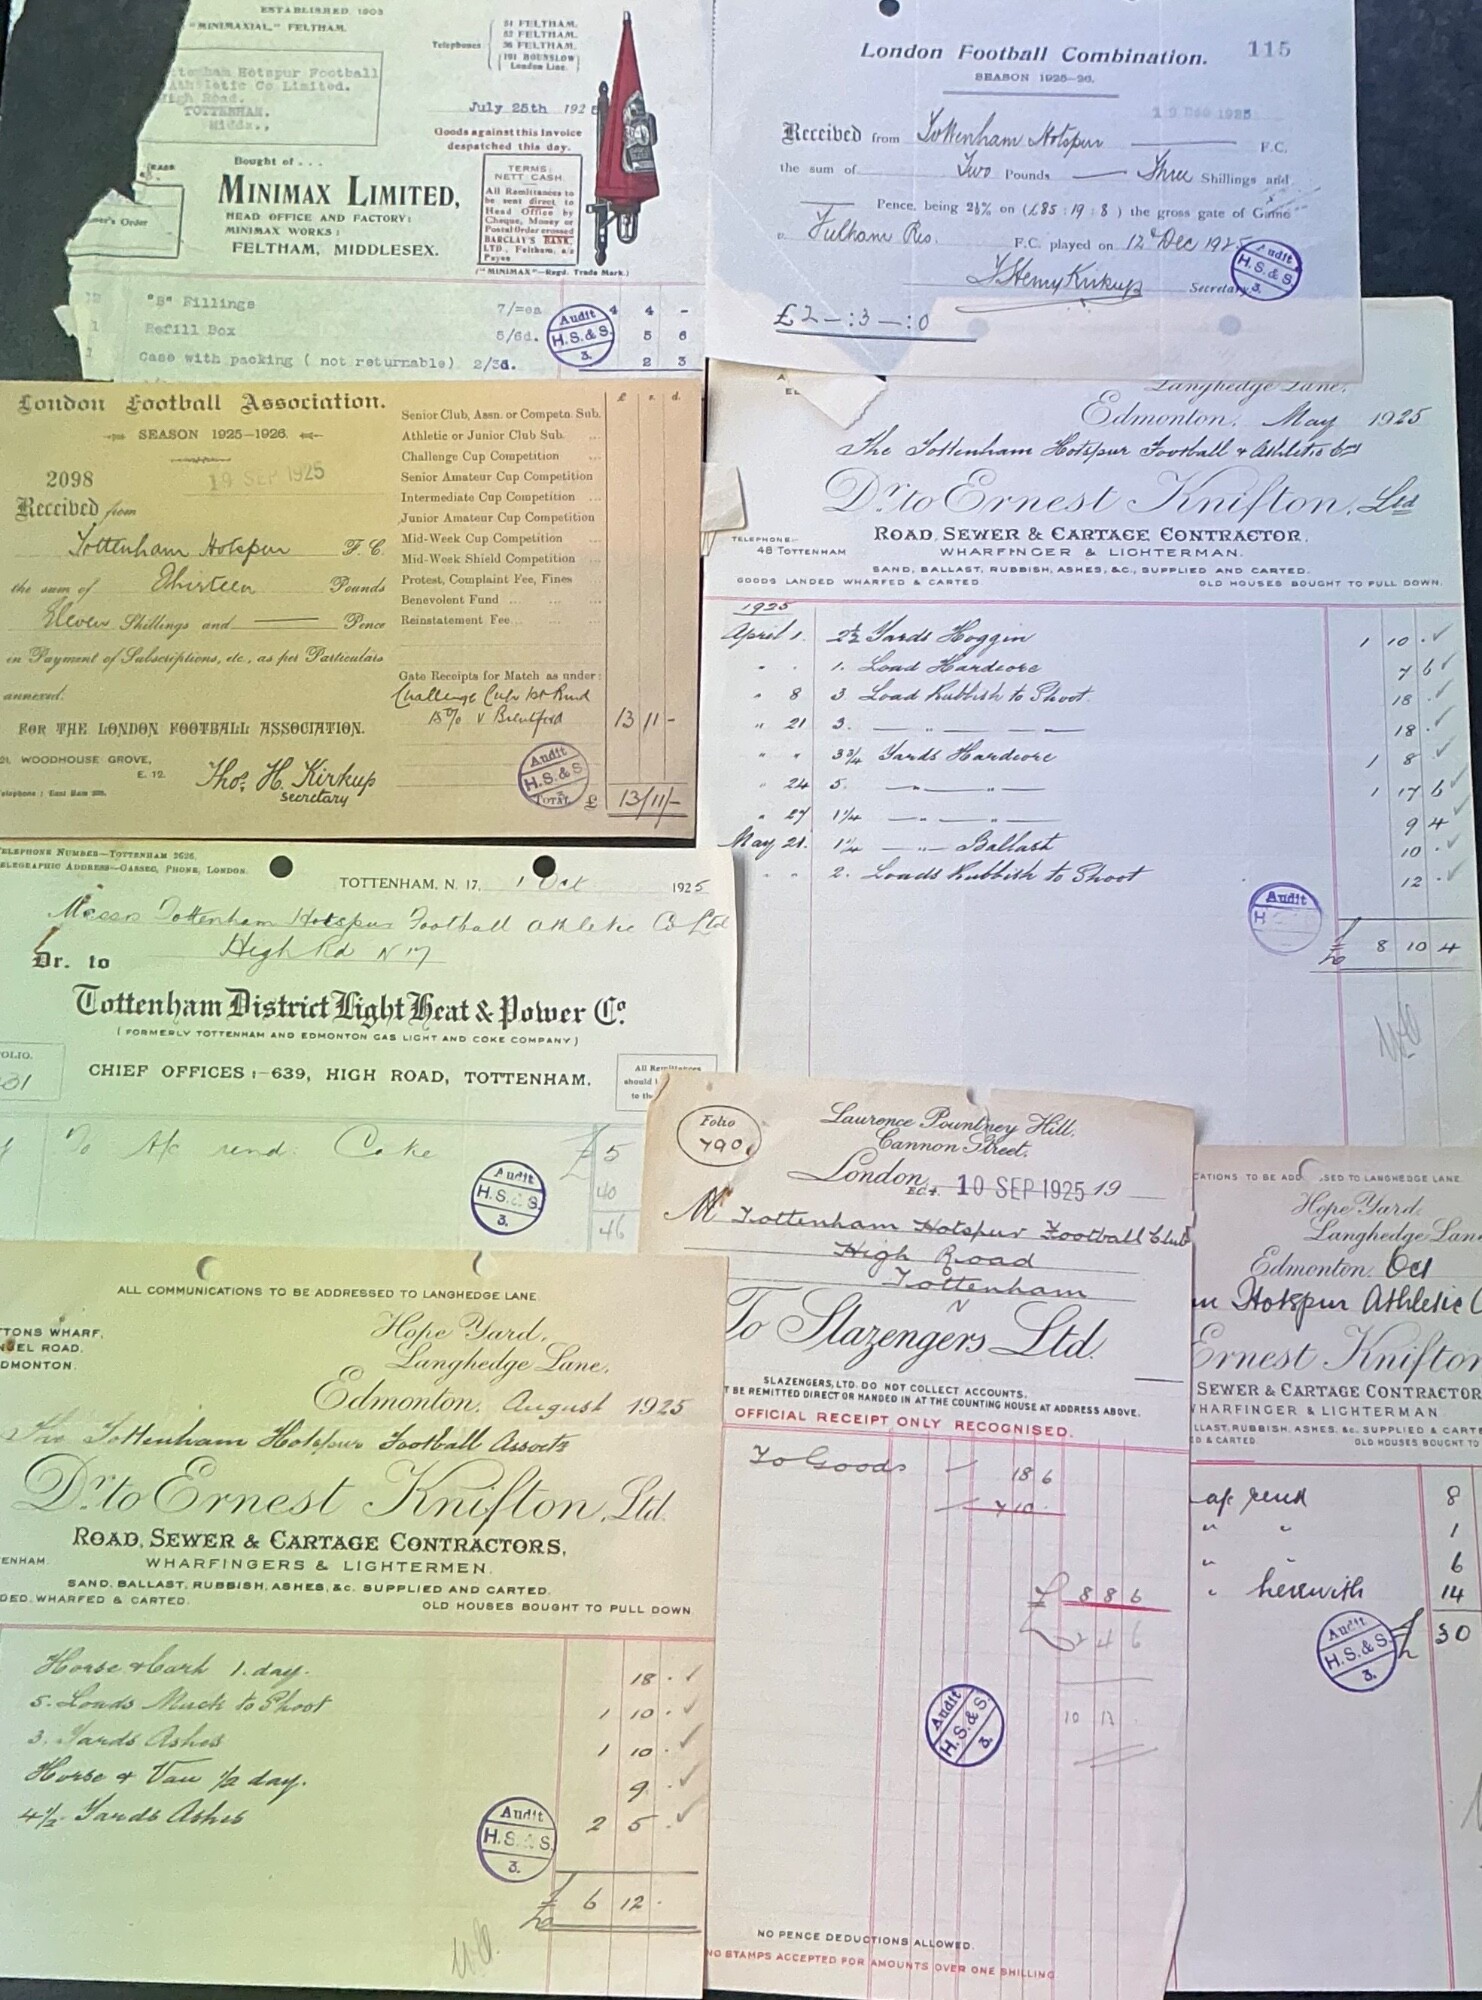 ESTABLISHED 1903
"MINIMAXIAL," FELTHAM.
Telephones
51 FELTHAM.
52 FELTHAM.
56 FELTHAM.
191 HOUNSLOW
London Line.
Hotspur Football
Athletic Co Limited.
High Road.
TOTTENHAM.
Middx.,
July 25th 192
Goods against this Invoice
despatched this day.
Bought of . . .
MINIMAX LIMITED,
HEAD OFFICE AND FACTORY:
MINIMAX WORKS:
FELTHAM, MIDDLESEX.
TERMS:
NETT CASH
All Remittances to
be sent direct to
Head Office by
Cheque, Money or
Postal Order crossed
BARCLAY'S BANK,
LTD., Feltham, a/c
Payee
("MINIMAX"—Regd. Trade Mark.)
Order
12 "S" Fillings 7/=ea 4 4 -
1 Refill Box 5/6d. 5 6
1 Case with packing ( not returnable) 2/3d. 2 3
Audit
H.S.& S.
3.
London Football Combination. 115
SEASON 1925-26.
19 DEC 1925
Received from Tottenham Hotspur F.C.
the sum of Two Pounds — Three Shillings and
— Pence, being 2½% on (£85:19:8) the gross gate of Game
v. Fulham Res. F.C. played on 12th Dec 1925
T. Henry Kirkup Secretary.
£2-:3-:0
Audit
H.S.& S.
3.
London Football Association.
SEASON 1925-1926.
2098 19 SEP 1925
Received from
Tottenham Hotspur F.C.
the sum of Thirteen Pounds
Eleven Shillings and — Pence
in Payment of Subscriptions, etc., as per Particulars
annexed.
FOR THE LONDON FOOTBALL ASSOCIATION.
WOODHOUSE GROVE,
E. 12.
Thos. H. Kirkup
Secretary
£ s. d.
Senior Club, Assn. or Competn. Sub.
Athletic or Junior Club Sub. ...
Challenge Cup Competition ...
Senior Amateur Cup Competition
Intermediate Cup Competition ...
Junior Amateur Cup Competition
Mid-Week Cup Competition ...
Mid-Week Shield Competition ...
Protest, Complaint Fee, Fines
Benevolent Fund ... ... ...
Reinstatement Fee... ... ...
Gate Receipts for Match as under:
Challenge Cup 1st Rnd
15% v Brentford 13 11 -
TOTAL £ 13/11/-
Audit
H.S.& S
3.
Langhedge Lane.
Edmonton, May 1925
The Tottenham Hotspur Football & Athletic Co Ld
Dr. to Ernest Knifton, Ltd
TELEPHONE:-
48 TOTTENHAM
ROAD, SEWER & CARTAGE CONTRACTOR,
WHARFINGER & LIGHTERMAN.
SAND, BALLAST, RUBBISH, ASHES, &C., SUPPLIED AND CARTED.
GOODS LANDED WHARFED & CARTED. OLD HOUSES BOUGHT TO PULL DOWN.
1925
April 1. 2½ Yards Hoggin 1 10 .
" . 1. Load Hardcore 7 6
" 8 3. Load Rubbish to Shoot. 18 .
" 21 3. — " — " — 18 .
" " 3¾ Yards Hardcore 1 8 .
" 24 5. — " — " — 1 17 6
" 27 1¼ — " — " — 9 4
May 21. 1¼ — " — Ballast 10 .
" " 2. Loads Rubbish to Shoot 12 .
£ 8 10 4
Audit
H
TELEPHONE NUMBER—TOTTENHAM 2626.
TELEGRAPHIC ADDRESS—GASSEC, PHONE, LONDON.
TOTTENHAM, N. 17, 1 Oct 1925
Messrs Tottenham Hotspur Football Athletic Co Ltd
High Rd N 17
Dr. to
Tottenham District Light Heat & Power Co.
(FORMERLY TOTTENHAM AND EDMONTON GAS LIGHT AND COKE COMPANY)
FOLIO.
CHIEF OFFICES:-639, HIGH ROAD, TOTTENHAM.
All Remittances
should
to the
To A/c rend. Coke £5
40
46
Audit
H.S.& S.
3.
Folio
790
Laurence Pountney Hill,
Cannon Street,
London, E.C.4. 10 SEP 1925 19
M Tottenham Hotspur Football Club
High Road
Tottenham
N
To Slazengers Ltd.
SLAZENGERS, LTD. DO NOT COLLECT ACCOUNTS.
BE REMITTED DIRECT OR HANDED IN AT THE COUNTING HOUSE AT ADDRESS ABOVE.
OFFICIAL RECEIPT ONLY RECOGNISED.
To Goods 18 6
7 10
£ 8 8 6
2 4 6
10 13
Audit
H.S.& S.
3.
NO PENCE DEDUCTIONS ALLOWED.
NO STAMPS ACCEPTED FOR AMOUNTS OVER ONE SHILLING
ALL COMMUNICATIONS TO BE ADDRESSED TO LANGHEDGE LANE.
WHARF,
ROAD.
EDMONTON.
Hope Yard,
Langhedge Lane,
Edmonton, August 1925
The Tottenham Hotspur Football Assocts
Dr. to Ernest Knifton, Ltd.
ROAD, SEWER & CARTAGE CONTRACTORS,
WHARFINGERS & LIGHTERMEN.
SAND, BALLAST, RUBBISH, ASHES, &C. SUPPLIED AND CARTED.
WHARFED & CARTED. OLD HOUSES BOUGHT TO PULL DOWN.
Horse & Cart 1. day. 18 .
5. Loads Muck to Shoot 1 10 .
3. Yards Ashes 1 10 .
Horse & Van ½ day. 9 .
4½ Yards Ashes 2 5 .
£ 6 12 .
Audit
H.S.& S.
3.
TO LANGHEDGE LANE.
Hope Yard,
Langhedge Lane
Edmonton, Oct
Hotspur Athletic C
Ernest Knifton
SEWER & CARTAGE CONTRACTOR
WHARFINGER & LIGHTERMAN
RUBBISH, ASHES, &c. SUPPLIED & CARTE
& CARTED OLD HOUSES BOUGHT TO
a/c rend 8
" " 1
" " 6
" herewith 14
£ 30
Audit
H.S.& S.
3.